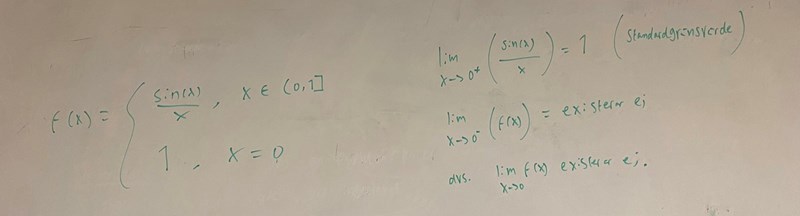 f(x) = { sin(x)/x , x ∈ (0,1]
1 , x = 0
lim x→0⁺ (sin(x)/x) = 1 (standardgränsvärde)
lim x→0⁻ (f(x)) = existerar ej
dvs. lim x→0 f(x) existerar ej.